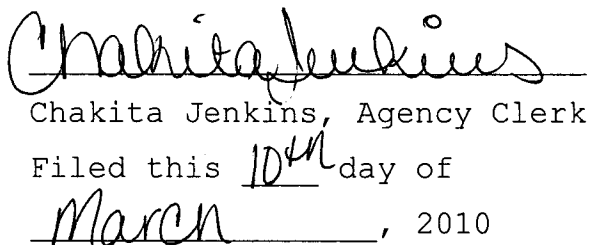 Chakita Jenkins
Chakita Jenkins, Agency Clerk
Filed this 10th day of
March, 2010